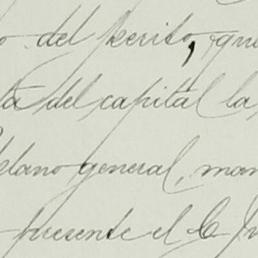 o del perito, que
ta del capital la
plano general, man
presente el C. Ju